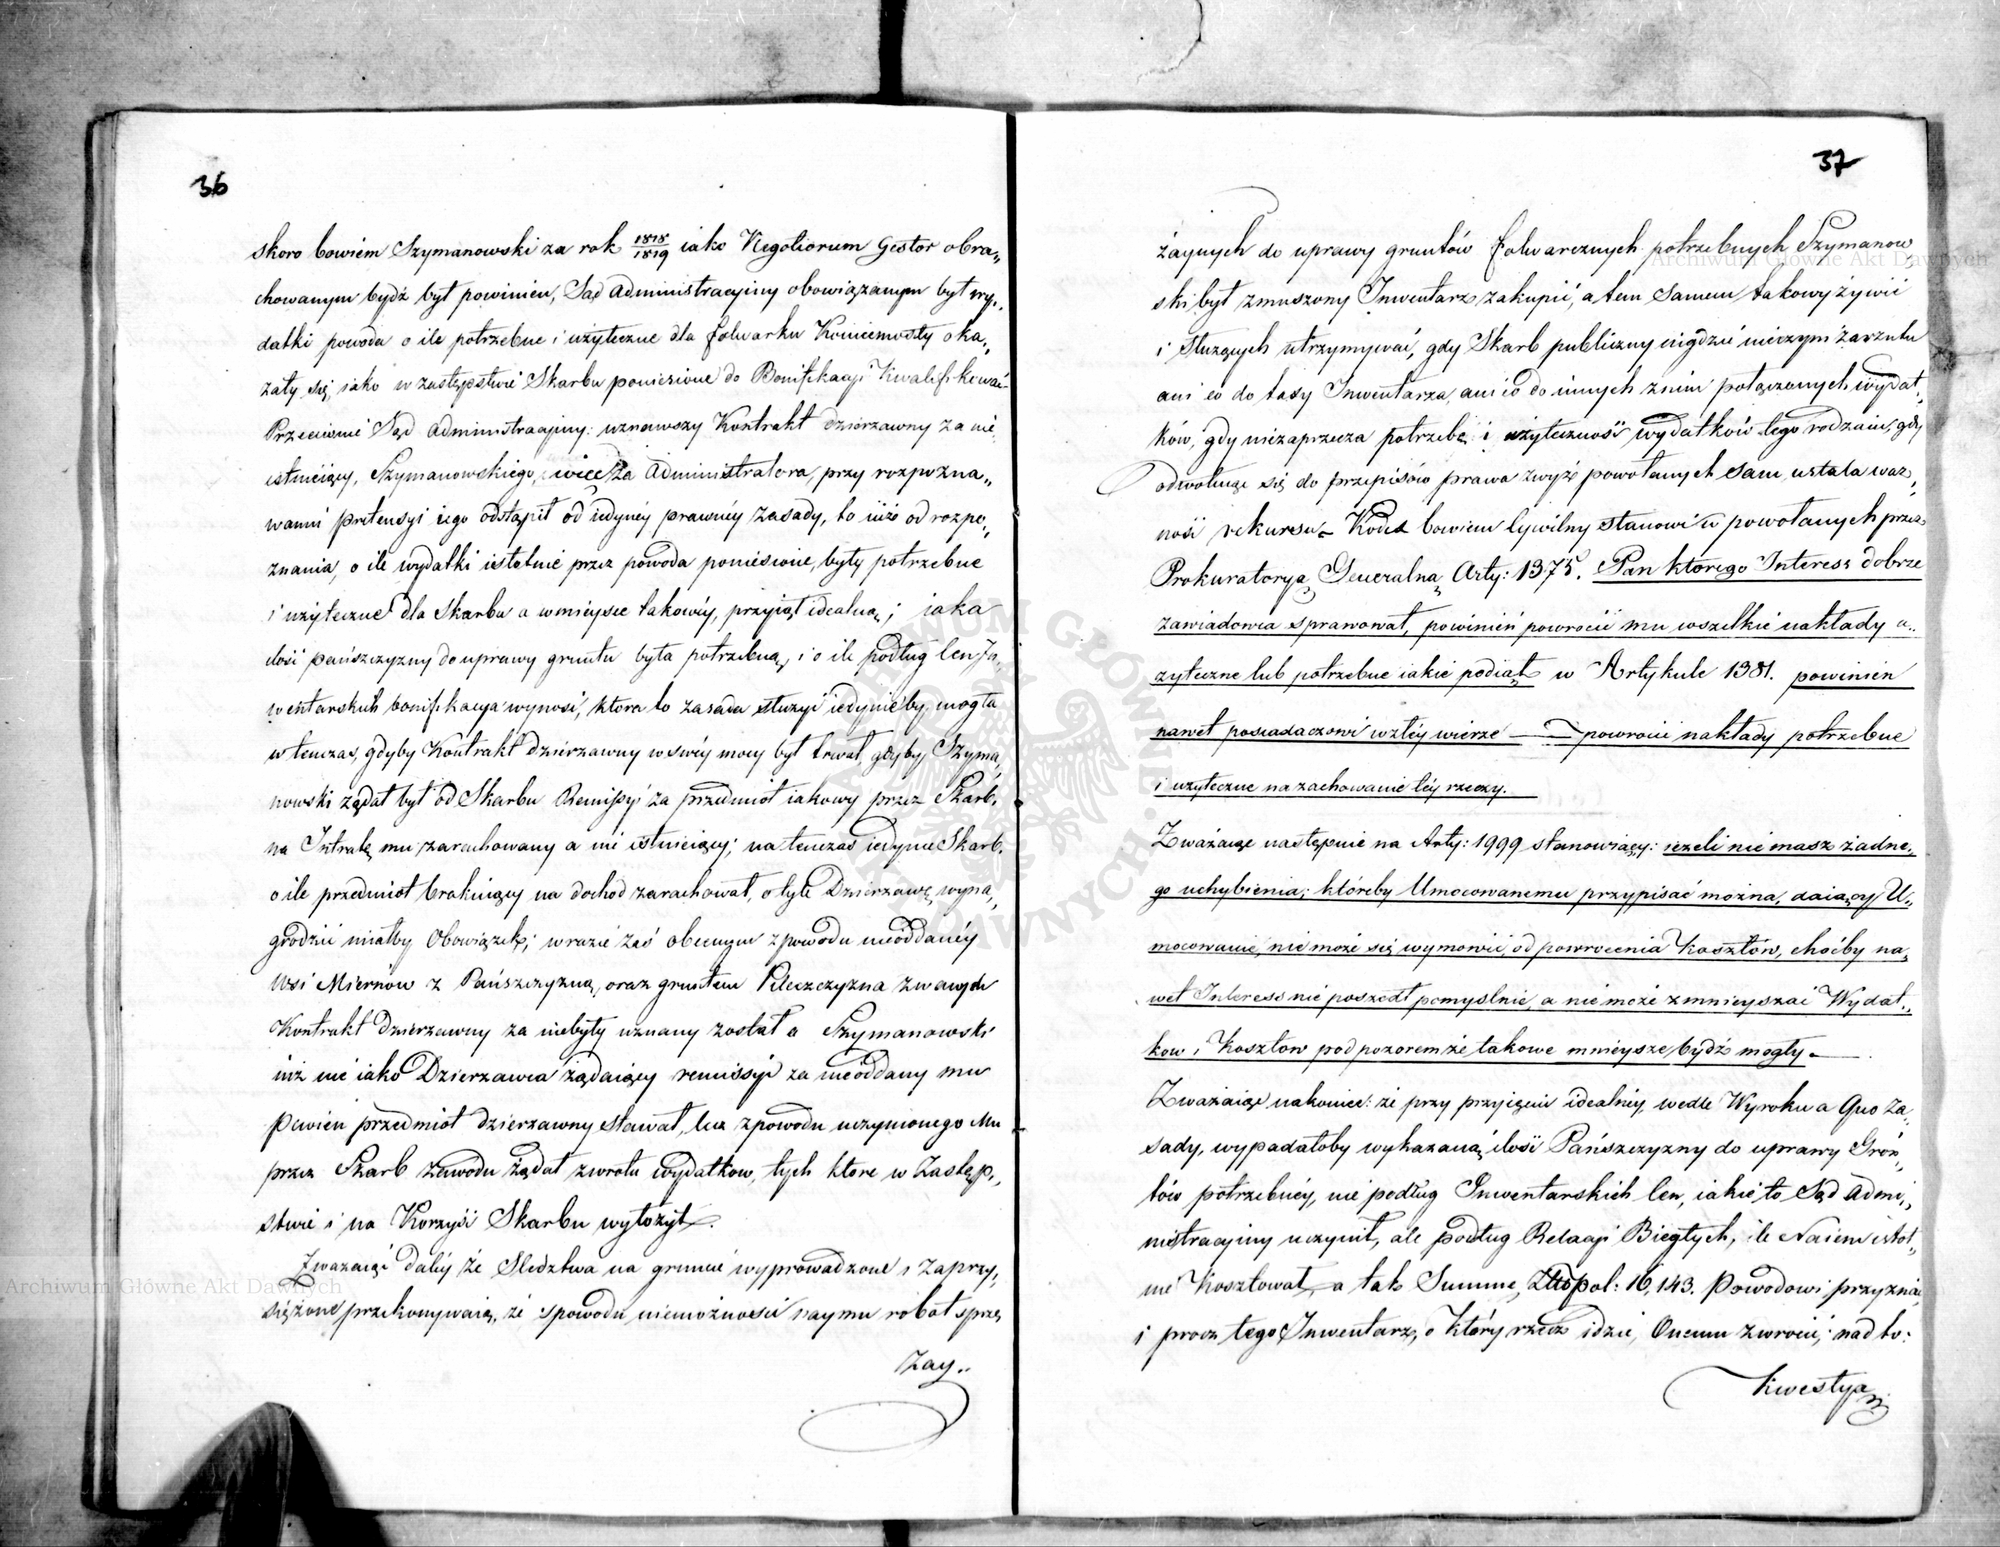 36
skoro bowiem Szymanowski za rok 1818/1819 iako Negotiorum Gestor obra„
chowanym bydź był powinien, Sąd Administracyiny obowiązanym był wy„
datki powoda o ile potrzebne i użyteczne dla folwarku Koniemosty oka„
zały się, iako w zastępstwie Skarbu poniesione do Bonifikacyi Kwalifikować
Przeciwnie Sąd Administracyiny: uznawszy Kontrakt dzierzawny za nie„
istnieiący, Szymanowskiego, wiec za Administratora, przy rozpozna„
waniu pretensyi iego odstąpił od iedyney prawney zasady, to iest od rozpo„
znania, o ile wydatki istotnie przez powoda poniesione, były potrzebne
i użyteczne dla Skarbu a w mieysce takowey, przyiął idealną; iaka
ilość pańszczyzny do uprawy gruntu była potrzebną, i o ile podług cen In„
wentarskich bonifikacya wynosi, która to zasada służyć iedynie by mogła
w tenczas, gdyby Kontrakt dzierzawny w swéy mocy był trwał, gdyby Szyma„
nowski żądał był od Skarbu Remissyi za przedmiot iakowy przez Skarb
na Intratę mu zarachowany a nie istnieiący; na tenczas iedynie Skarb.
o ile przedmiot brakuiący na dochod zarachował, o tyle Dzierzawcę wyna„
grodzić miałby Obowiązek; w razie zaś obecnym z powodu nieoddanéy
Wsi Miernow z Pańszczyzną, oraz gruntem Pileczczyzna zwanych
Kontrakt dzierzawny za niebyły uznany został a Szymanowski
iuż nie iako Dzierzawca żądaiący remissyi za nieoddany mu
pewien przedmiot dzierzawny stawał, lecz z powodu uczynionego Mu
przez Skarb zawodu żądał zwrotu wydatkow, tych które w Zastęp„
stwie i na Korzyść Skarbu wyłożył.
Zważaiąc daléy że Sledztwa na gruncie wyprowadzone i zaprzy„
siężone przekonywaią, że z powodu niemożności naymu robot sprzę
żay„
37
żaynych do uprawy gruntów folwarcznych potrzebnych Szymanow
ski był zmuszony Inwentarz zakupić, a tem samem takowy żywić
i służących utrzymywać, gdy Skarb publiczny nigdzie nieczyni zarzutu
ani co do taxy Inwentarza, ani co do innych z nim połączonych wydat„
ków, gdy niezaprzecza potrzebę i użyteczność wydatków tego rodzaiu, gdy
odwołuiąc się do przepisów prawa zwyż powołanych sam ustala waż„
ność rekursu – Kodex bowiem Cywilny stanowi w powołanych przez
Prokuratoryą Generalną Arty: 1375. Pan którego Interess dobrze
zawiadowca sprawował, powinien powrócić mu wszelkie nakłady u„
żyteczne lub potrzebne iakie podiął w Artykule 1381. powinien
nawet posiadaczowi w złéy wierze — powrócić nakłady potrzebne
i użyteczne na zachowanie téy rzeczy.
Zważaiąc następnie na Arty: 1999 stanowiący: ieżeli nie masz żadne„
go uchybienia; któreby Umocowanemu przypisać można, daiący U„
mocowanie, nie może się wymowić, od powrocenia Kosztów, choćby na„
wet Interess nie poszedł pomyślnie, a nie może zmnieyszać Wydat„
kow i Kosztow pod pozorem że takowe mnieysze bydź mogły –
Zważaiąc nakoniec: że przy przyięciu idealnéy, wedle Wyroku a Quo Za„
sady, wypadałoby wykazaną ilość Pańszczyzny do uprawy Grón„
tów potrzebnéy, nie podług Inwentarskich cen, iakie to Sąd Admi„
nistracyiny uczynił, ale podług Relacyi Biegłych, ile Naiem istot„
nie Kosztował, a tak Summę, Złtpol: 16,143. Powodowi przyznać
i procz tego Inwentarz, o Który rzecz idzie, Onemu zwrocić; nad to:
Kwestya